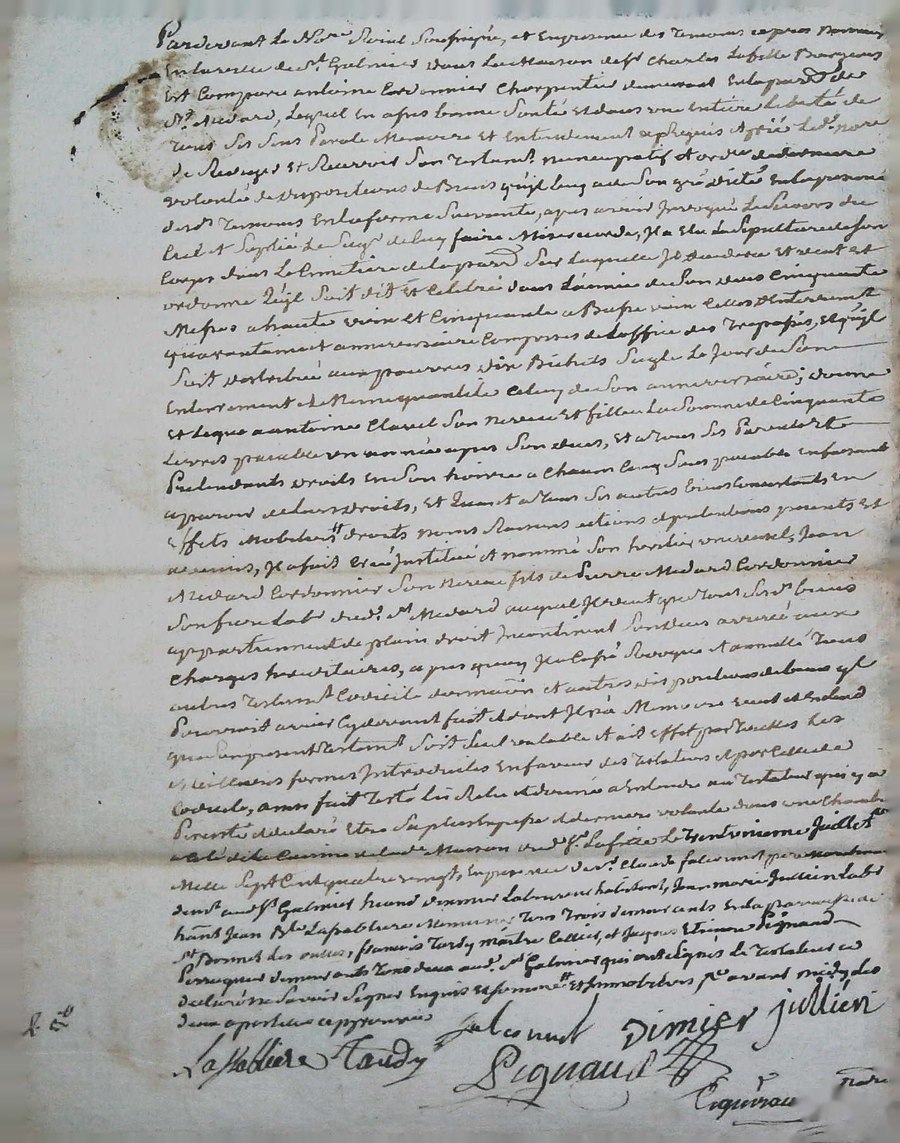 Pardevant Le No.re Roial Soussigné, et En presence des Temoins cy apres Nommés
En la ville de St. Galmier dans La Maison de Sr. Charles Bourgeois
Est Comparu antoine Cordonnier Charpentier demeurant En la parr.e de
St. Medard, Lequel En assés bonne Santé et dans une Entiere Liberté de
Tous Ses Sens Parole Memoire Et Entendement a Requis led. no.re
de Rediger Et Recevoir Son Testam.t nuncupatif et ordre de derniere
volonté de dispositions de Biens qu'il luy a de Son gré dicté En la presence
desd. Temoins En la forme Suivante, apres avoir Invoqué Le Secours du
Ciel et Suplié Le Seigr. de luy faire Misericorde, Il a Elu Sa Sepulture de Son
Corps dans Le Cimetiere de lad. parr.e Sur laquelle Il decedera Et veut Et
ordonne qu'il Soit dit Et Celebré dans L'année de Son deces Cinquante
Messes a haute voix et Cinquante a Basse voix Celles d'Enterrement
quarantaine et anniversaire Comprises de L'office des Trepassés, Et qu'il
Soit distribué aux pauvres dix Bichets Seigle Le Jour de Son
Enterrement et Meme quantité Celuy de Son anniversaire; donne
Et Legue a antoine Clavel Son Neveu Et filleul La Somme de Cinquante
Livres paiable un année apres Son deces, Et a Tous Ses Parents Et
Pretendants droits En Son hoirie a Chacun Cinq Sous paiables En faisant
aparoir de leurs droits, Et Quant a Tous Ses autres biens Consistants En
Effets Mobiliers droits noms Raisons actions et pretentions presents Et
avenir, Il a fait Créé Institué Et nommé Son heritier universel, Jean
Medard Cordonnier Son Neveu fils de Pierre Medard Cordonnier
Son frere Lab.r dud. St. Medard auquel Il veut que Tous Sesd. biens
appartiennent de plain droit Incontinent Son deces arrivé aux
Charges hereditaires, a pres quoy Il a Cassé Revoqué Et annullé Tous
autres Testam.ts Codicile donnation et autres dispositions de biens qu'il
Pourroit avoir Cy devant fait dont Il n'a Memoire veut et Entend
que Le present Testam.t Soit Seul valable Et ait Effet par Toutes Les
Meilleures formes Introduites En faveur des Testateurs Et par Celle de
Codicile, ainsi fait dicté Lu Relu Et donné a Entendre au Testateur qui y a
Persisté declaré Etre Sa plus Expresse derniere volonté dans une Chambre
a Coté de la Cuisine de lad. Maison dud. Sr. Le Trente unieme Juillet
Mille Sept Cent quatre vingt, En presence de Sr. Claude falconnet pere Marchand
dem.t aud. St. Galmier Dimier Laboureur habitant, Jean marie Jullien Lab.r
hant Jean B.te Lassabliere Tous Trois demeurants En la parroisse de
St. Bonnet Les oulles, françois Tardy maitre Cellier, et Jacques Etienne Pignaud
Perruquier demeurants Tous deux aud. St. Galmier qui ont Signés Le Testateur a
declaré ne Savoir Signer Enquis Et Sommé Et avant midy Les
deux apostilles approuvées
falconnet Dimier Jullien
Lassabliere Tardy
Pignaud
no.re